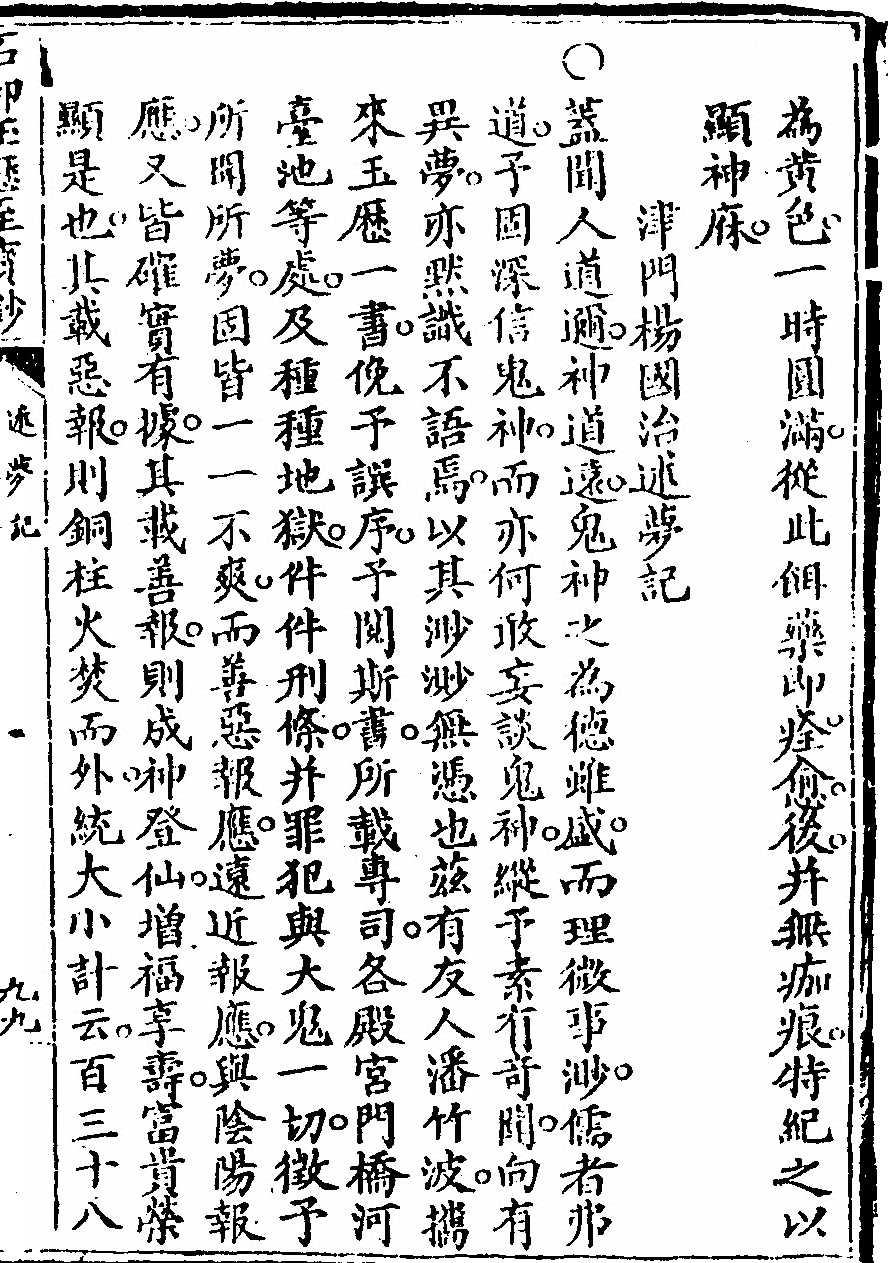 為黄色。一時圓滿。從此俱藥即痊愈。後。并無痂痕。特紀之以
顯神庥。
津門楊國治述夢記
○蓋聞人道邇。神道遠。鬼神之為德雖盛。而理微事渺。儒者弗
道。予固深信鬼神。而亦何敢妄談鬼神。縱予素有奇聞。向有
異夢。亦黙識不語焉。以其渺渺無憑也茲有友人潘竹波。攜
來玉歷一書。俛予譔序。予閱斯書。所載專司。各殿宮門橋河
臺池等處。及種種地獄。件件刑條。并罪犯與大鬼一切。徵予
所聞所夢。固皆一一不爽。而善惡報應。遠近報應。與陰陽報
應。又皆確實有據。其載善報。則成神登仙。增福享壽。富貴榮
顯是也。其載惡報。則銅柱火焚而外。統大小計云。百三十八
石印玉歷至寶鈔
述夢記
九九